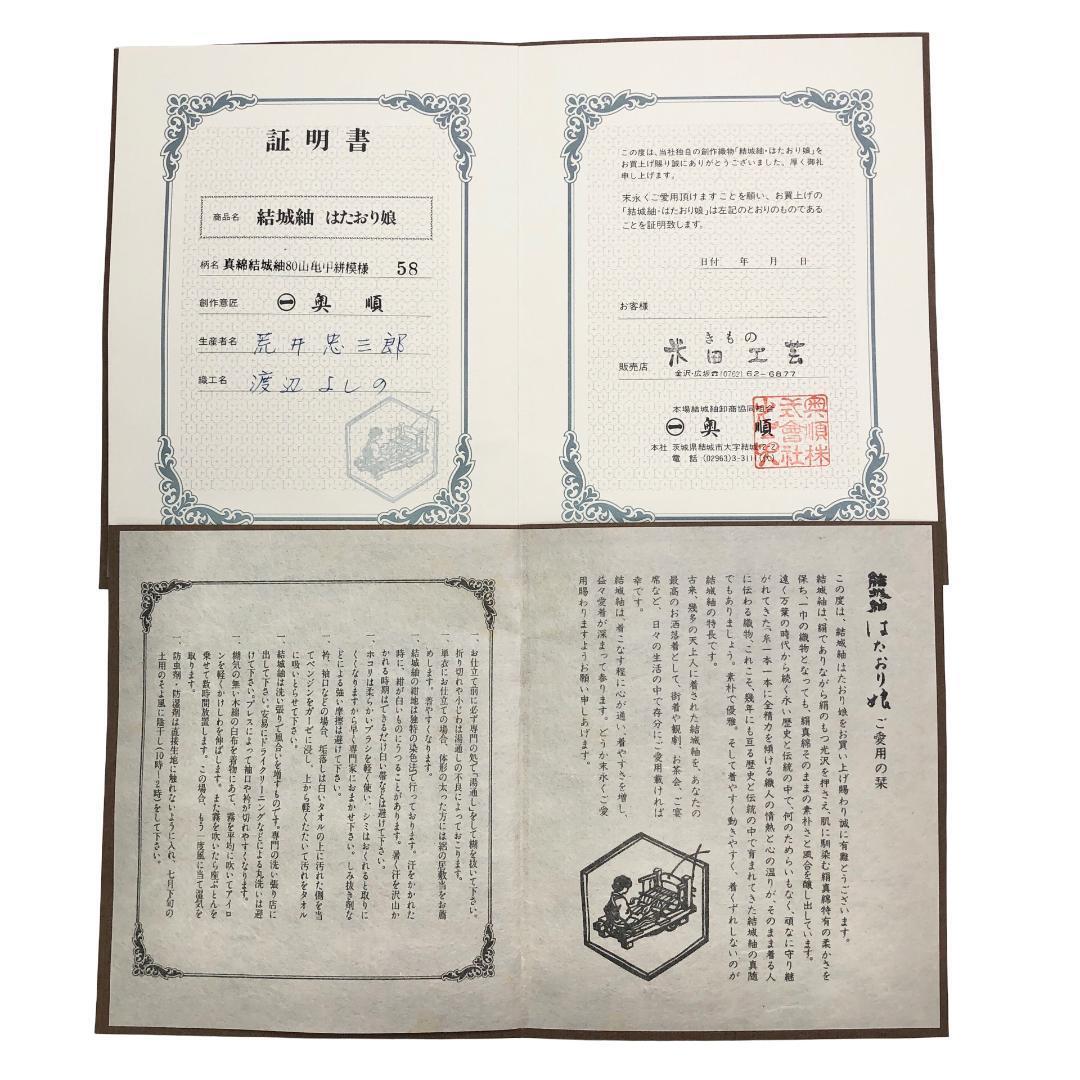 証明書
商品名 結城紬 はたおり娘
柄名 真綿結城紬80山亀甲絣模様 58
創作意匠 ㊀ 奥順
生産者名 荒井忠三郎
織工名 渡辺よしの
この度は、当社独自の創作織物「結城紬・はたおり娘」を
お買上げ賜り誠にありがとうございました。厚く御礼
申し上げます。
末永くご愛用頂けますことを願い、お買上げの
「結城紬・はたおり娘」は左記のとおりのものである
ことを証明致します。
日付 年 月 日
お客様
きもの
販売店 米田工芸
金沢・広坂☎(0762)62-6877
本場結城紬卸商協同組合
㊀ 奥順
本社 茨城県結城市大字結城12-2
電話 (02963)3-3111(代)
奥順株
式會社
結城紬 はたおり娘 ご愛用の栞
この度は、結城紬はたおり娘をお買い上げ賜わり誠に有難とうございます。
結城紬は、絹でありながら絹のもつ光沢を押さえ、肌に馴染む絹真綿特有の柔かさを
保ち、一巾の織物となっても、絹真綿そのままの素朴さと風合を醸し出しています。
遠く万葉の時代から続く永い歴史と伝統の中で、何のためらいもなく、頑なに守り継
がれてきた、糸一本一本に全精力を傾ける織人の情熱と心の温りが、そのまま着る人
に伝わる織物、これこそ、幾年にも亘る歴史と伝統の中で育まれてきた結城紬の真随
でもありましょう。素朴で優雅。そして着やすく動きやすく、着くずれしないのが
結城紬の特長です。
古来、幾多の天上人に着された結城紬を、あなたの
最高のお洒落着として、街着や観劇、お茶会、ご宴
席など、日々の生活の中で存分にご愛用載ければ
幸です。
結城紬は、着こなす程に心が通い、着やすさを増し、
益々愛着が深まって参ります。どうか末永くご愛
用賜わりますようお願い申しあげます。
一、お仕立て前に必ず専門の処で「湯通し」をして糊を抜いて下さい。
折り切れや小じわは湯通しの不良によっておこります。
一、単衣にお仕立ての場合、体形の太った方には絽の居敷当をお薦
めします。着やすくなります。
一、結城紬の紺地は独特の染色法で行っております。汗をかかれた
時に、紺が白いものにうつることがあります。暑く汗を沢山か
かれる時期はできるだけ白い帯などは避けて下さい。
一、ホコリは柔らかいブラシを軽く使い、シミはおくれると取りに
くくなりますから早く専門家におまかせ下さい。しみ抜き剤な
どによる強い摩擦は避けて下さい。
一、衿、袖口などの場合、垢落しは白いタオルの上に汚れた側を当
てベンジンをガーゼに浸し、上から軽くたたいて汚れをタオル
に吸いとらせて下さい。
一、結城紬は洗い張りで風合いを増すものです。専門の洗い張り店に
出して下さい。安易にドライクリーニングなどによる丸洗いは避
けて下さい。プレスによって袖口や衿が切れやすくなります。
一、糊気の無い木綿の白布を着物にあて、霧を平均に吹いてアイロ
ンを軽くかけしわを伸ばします。また霧を吹いたら座ぶとんを
乗せて数時間放置します。この場合、もう一度風に当て湿気を
取ります。
一、防虫剤・防湿剤は直接生地に触れないように入れ、七月下旬の
土用のそよ風に陰干し(10時〜2時)をして下さい。